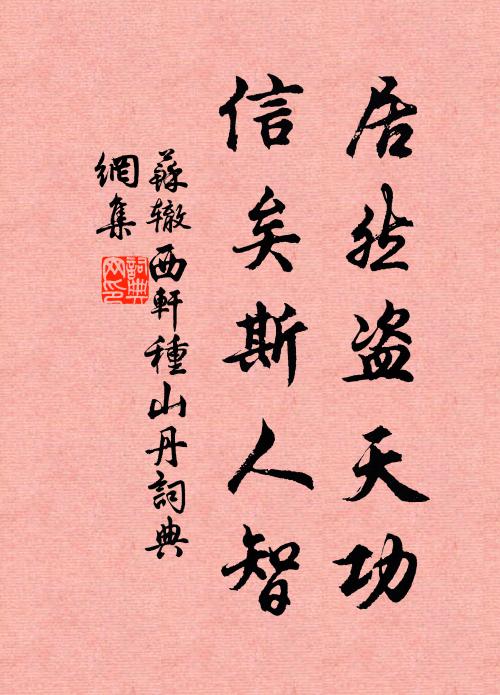 居然盗天功
信矣斯人智
蘇辙西軒種山丹詞典
網集
詞典网印